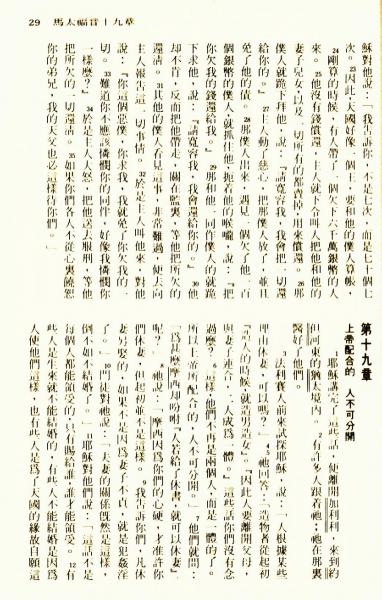 29 馬太福音十九章
穌對他說：「我告訴你，不是七次，而是七十個七
次。23因此，天國好像一個王，要和他的僕人算帳，
24剛算的時候，有人帶了一個欠下六千萬銀幣的人
來。25他沒有錢償還，主人就下令叫人把他和他的
妻子兒女，以及一切所有的都賣掉，用來償還。26那
僕人就跪下拜他，說：『請寬容我，我會把一切還
給你的。』27主人動了慈心，把那僕人放了，並且
免了他的債。28那僕人出來，遇見一個欠了他一百
個銀幣的僕人，就抓住他，扼着他的喉嚨，說：『把
你欠我的錢還給我。』29那和他一同作僕人的就跪
下求他，說：『請寬容我，我會還給你的。』30他
却不肯，反而把他帶走，關在監裏，等他把所欠的
還清。31其他的僕人看見這事，非常難過，便去向
主人報告這一切事情。32於是主人叫他來，對他
說：『你這個惡僕，你求我，我就免了你欠我的一
切。33難道你不應該憐憫你的同伴，好像我憐憫你
一樣麼？』34於是主人大怒，把他送去服刑，等他
把所欠的一切還清。35如果你們各人不從心裏饒恕
你的弟兄，我的天父也必這樣待你們。」
第十九章
上帝配合的 人不可分開
1耶穌講完了這些話，便離開加利利，來到約
但河東的猶太境內。2有許多人跟着祂；祂在那裏
醫好了他們。
3法利賽人前來試探耶穌，說：「人根據某些
理由休妻，可以嗎？」4祂回答：「造物者從起初
『造人的時候，就造男造女』，5『因此人要離開父母，
與妻子連合，二人成爲一體。』這些話你們沒有念
過麼？6這樣，他們不再是兩個人，而是一體的了。
所以上帝所配合的，人不可分開。」7他們就問：
「爲甚麼摩西却吩咐『人若給了休書，就可以休妻』
呢？」8祂說：「摩西因爲你們的心硬，才准許你
們休妻，但起初並不是這樣。9我告訴你們，凡休
妻另娶的，如果不是因爲妻子不貞，就是犯姦淫
了。」10門徒對祂說：「夫妻的關係旣然是這樣，
倒不如不結婚了。」11耶穌對他們說：「這話不是
每個人都能領受的，只有賜給誰，誰才能領受。12有
些人是生來就不能結婚的，有些人不能結婚是因爲
人使他們這樣，也有些人是爲了天國的緣故自願這